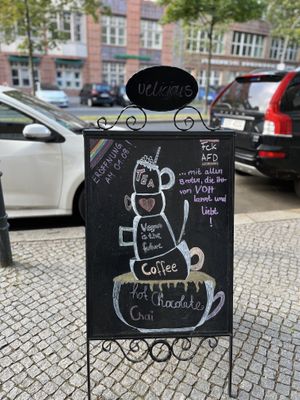 Vecicious
ERÖFFNUNG
AM 01.08!
Fck
AFD
... mit allen
Broten, die ihr
von VOH
kennt und
liebt!
TEA
Vegan
is the
future
Coffee
hot Chocolate
Chai